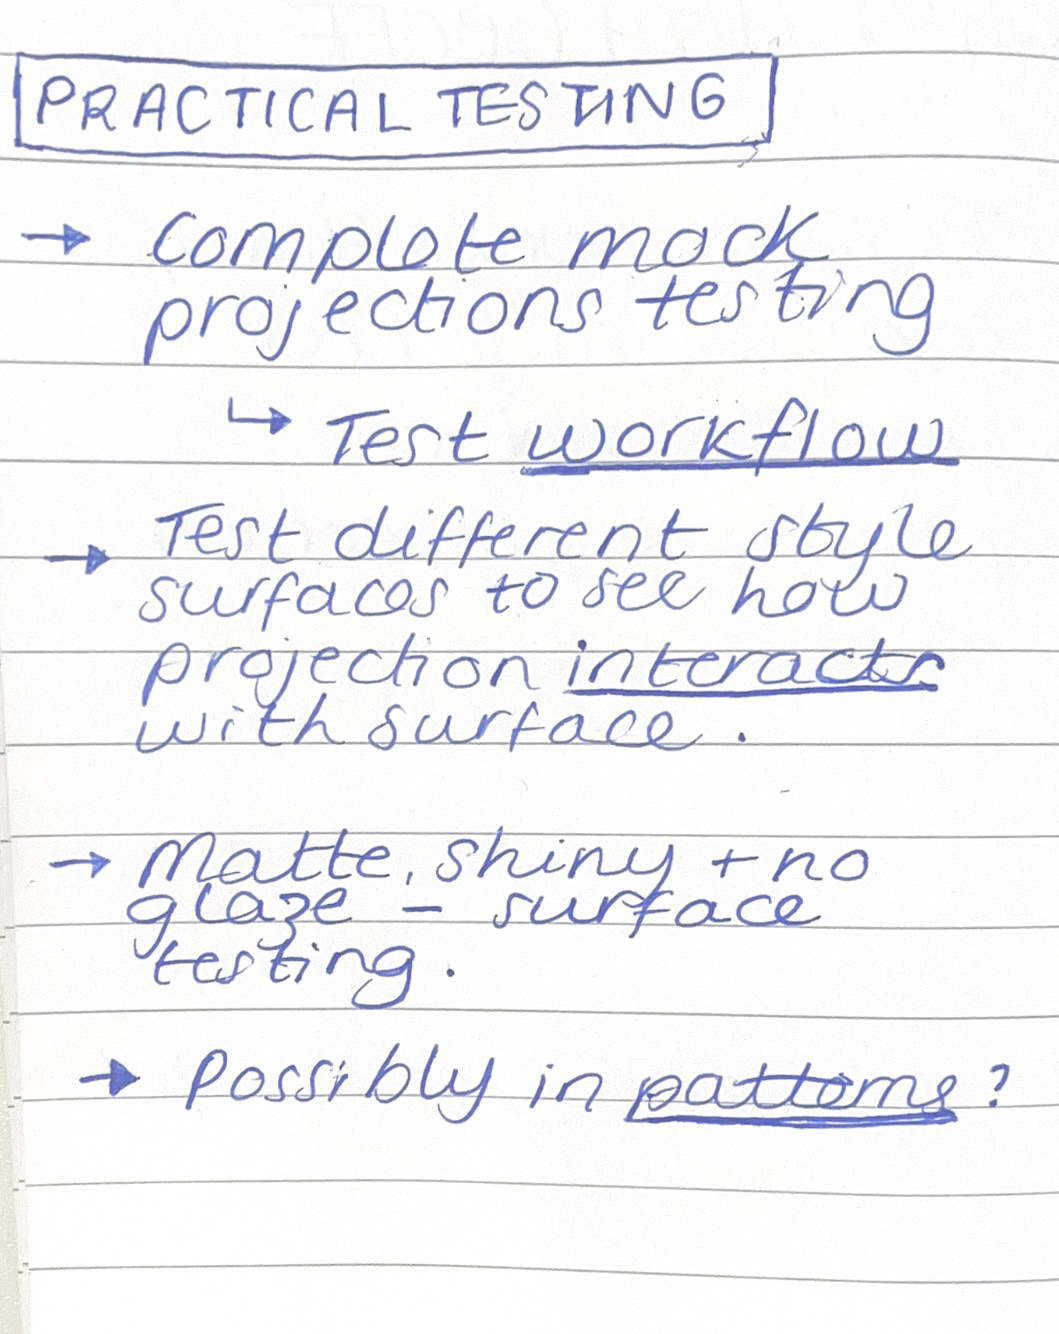 PRACTICAL TESTING
→ Complete mock
projections testing
↳ Test workflow
Test different style
→ surfaces to see how
projection interacts
with surface.
→ Matte, shiny + no
glaze - surface
testing.
→ Possibly in patterns?